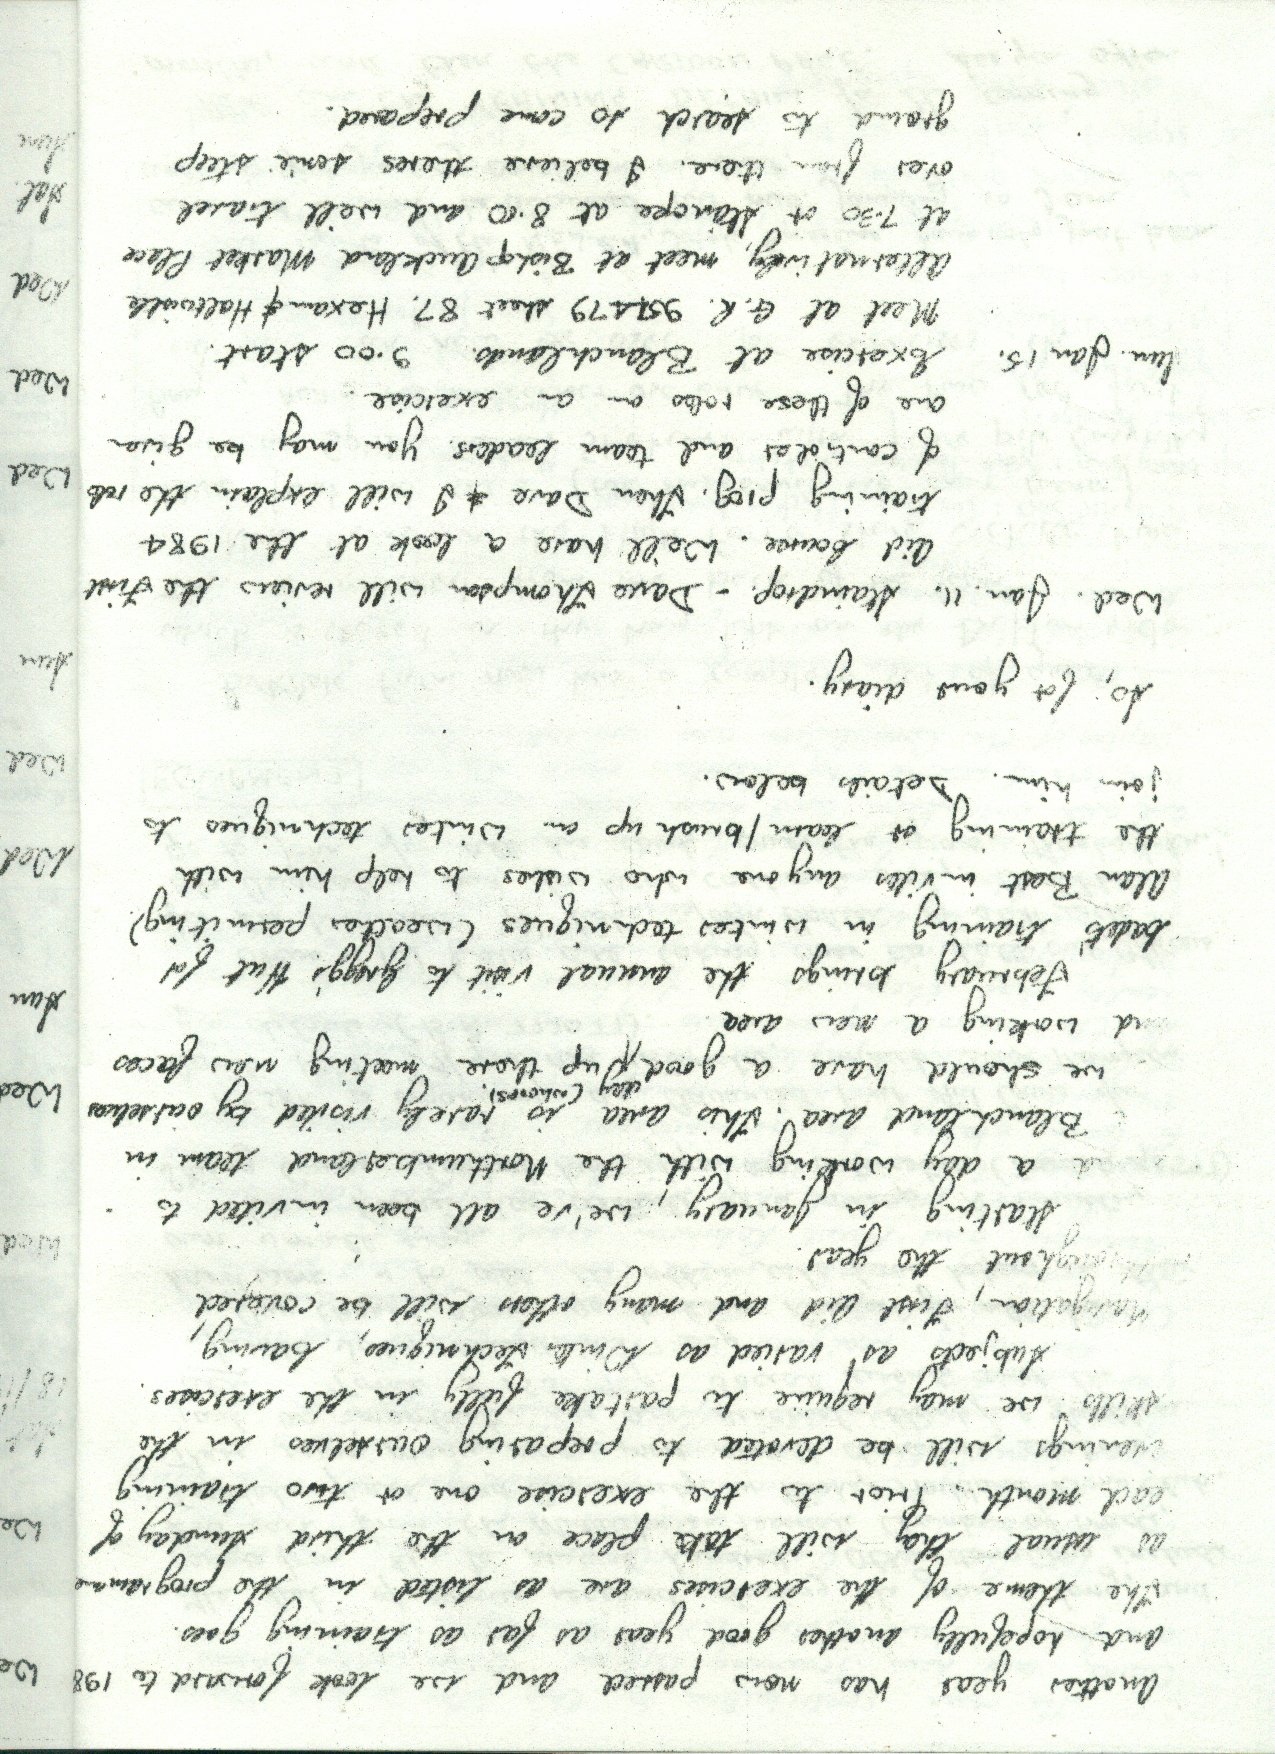 Another year has now passed and we look forward to 198
and hopefully another good year as far as training goes.
The theme of the exercises are as listed in the programme
as usual they will take place on the third Sunday of
each month. Prior to the exercise one or two training
evenings will be devoted to preparing ourselves in the
skills we may require to partake fully in the exercises.
Subjects as varied as Winter Techniques, Caving,
Navigation, First Aid and many others will be covered
throughout the year.
Starting in January, we've all been invited to
a day working with the Northumberland team in
Blanchland area. This area is rarely visited by ourselves
day (whoors!)
we should have a good up there meeting new faces
and working a new area
February brings the annual visit to Greggs Hut for
Cadets training in winter techniques (weather permitting)
Alan Best invites anyone who wishes to help him with
the training or learn/brush up on winter techniques to
join him. Details below.
So, for your diary.
Wed. Jan. 11. Staindrop. - Dave Thompson will review the First
Aid Course. We'll have a look at the 1984
training prog. Then Dave & I will explain the role
of controller and team leaders you may be given
one of these roles on an exercise.
Sun. Jan 15. Exercise at Blanchlands. 9.00 start.
Meet at G.R. 954479 sheet 87. Hexam & Haltwistle
Alternatively, meet at Bishop Auckland Market Place
at 7.30 or Stanope at 8.00 and we'll travel
over from there. I believe theres some steep
ground to search so come prepared.
We
We
Wed
Wed
Sun
Wed
Wed
Sun
Wed
Wed
Wed
Sat.
Sun